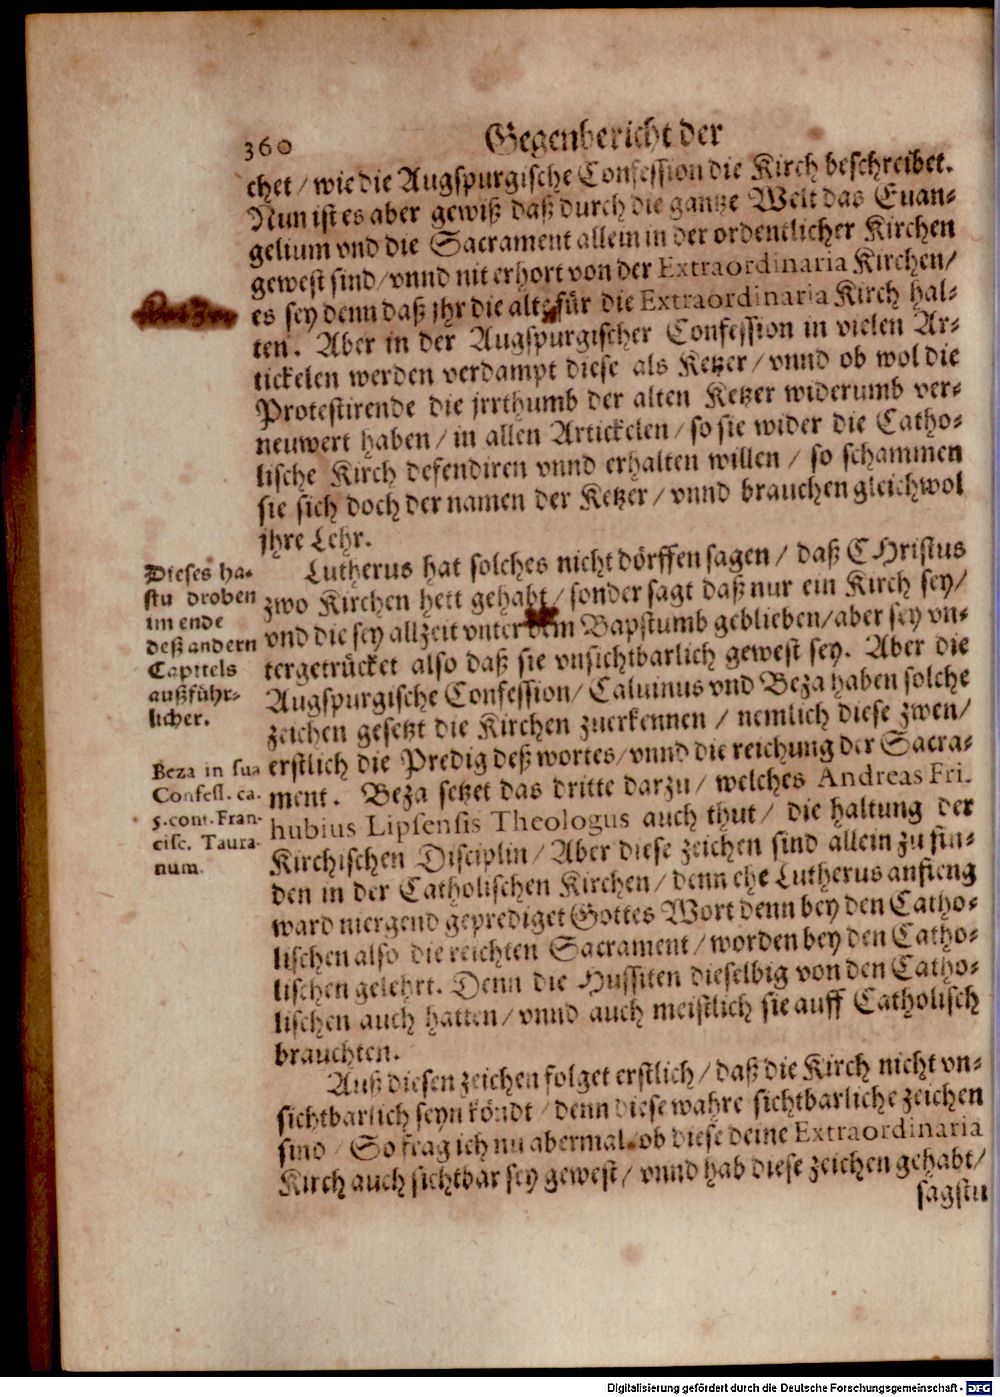 360 Gegenbericht der
chet / wie die Augspurgische Confession die Kirch beschreibet.
Nun ist es aber gewiß daß durch die gantze Welt das Euan-
gelium vnd die Sacrament allein in der ordentlicher Kirchen
gewest sind / vnnd nit erhort von der Extraordinaria Kirchen /
es sey denn daß jhr die alte für die Extraordinaria Kirch hal-
ten. Aber in der Augspurgischer Confession in vielen Ar-
tickelen werden verdampt diese als Ketzer / vnnd ob wol die
Protestirende die jrrthumb der alten Ketzer widerumb ver-
neuwert haben / in allen Artickelen / so sie wider die Catho-
lische Kirch defendiren vnnd erhalten willen / so schammen
sie sich doch der namen der Ketzer / vnnd brauchen gleichwol
jhre Lehr.
Lutherus hat solches nicht dörffen sagen / daß CHristus
zwo Kirchen hett gehabt / sonder sagt daß nur ein Kirch sey /
vnd die sey allzeit vnter dem Bapstumb geblieben / aber sey vn-
tergetrücket also daß sie vnsichtbarlich gewest sey. Aber die
Augspurgische Confession / Caluinus vnd Beza haben solche
zeichen gesetzt die Kirchen zuerkennen / nemlich diese zwen /
erstlich die Predig deß wortes / vnnd die reichung der Sacra-
ment. Beza setzet das dritte darzu / welches Andreas Fri-
hubius Lipsensis Theologus auch thut / die haltung der
Kirchischen Disciplin / Aber diese zeichen sind allein zu fin-
den in der Catholischen Kirchen / denn ehe Lutherus anfieng
ward niergend geprediget Gottes Wort denn bey den Catho-
lischen also die reichten Sacrament / worden bey den Catho-
lischen gelehrt. Denn die Hussiten dieselbig von den Catho-
lischen auch hatten / vnnd auch meistlich sie auff Catholisch
brauchten.
Auß diesen zeichen folget erstlich / daß die Kirch nicht vn-
sichtbarlich seyn köndt / denn diese wahre sichtbarliche zeichen
sind / So frag ich nu abermal. ob diese deine Extraordinaria
Kirch auch sichtbar sey gewest / vnnd hab diese zeichen gehabt /
sagstu
Dieses ha-
stu droben
im ende
deß andern
Capittels
außführ-
licher.
Beza in sua
Confess. ca.
5. cont. Fran-
cisc. Taura-
num.
Digitalisierung gefördert durch die Deutsche Forschungsgemeinschaft - DFG